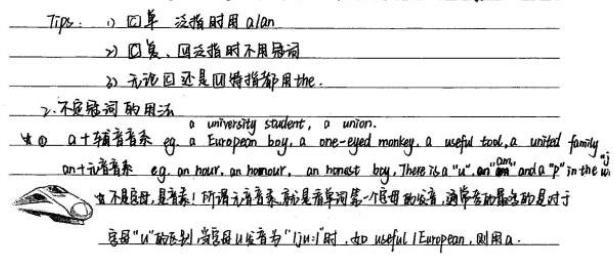 Tips: 1) [C]单 泛指时用 a/an
2) [C]复、[U]泛指时不用冠词
3) 无论[C]还是[U]特指都用the.
2.不定冠词的用法
a university student, a union.
☆① a+辅音音素 eg. a European boy, a one-eyed monkey, a useful tool, a united family
an+元音音素 eg. an hour, an honour, an honest boy, There is a "u", an "m" and a "p" in the w.
☆不是字母,是音素!所谓元音音素,就是看单词第一个字母的发音,通常考的最多的是对于
字母"u"的区别,当字母u发音为"[ju:]"时,如 useful / European,则用a.